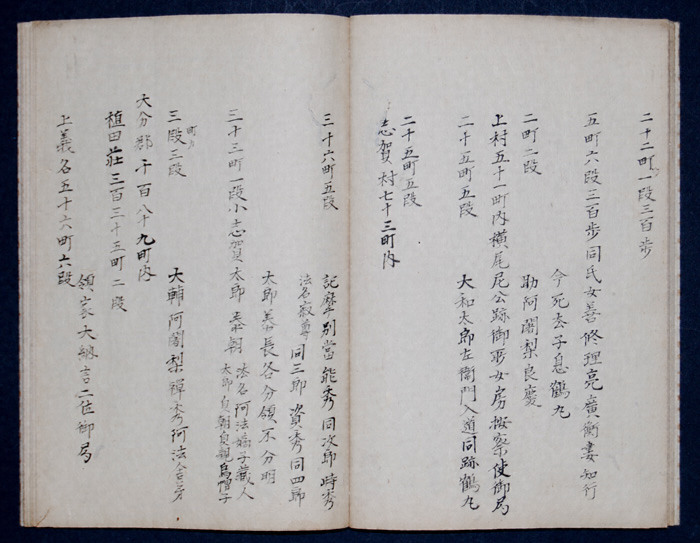 二十二町一段三百歩
五町六段三百歩同氏女善修理亮廣衡妻知行
今死去子息鶴丸
二町二段
助阿闍梨良慶
上村五十一町内横尾尼公跡御所女房按察使御局
二十五町五段
大和太郎左衛門入道同跡鶴丸
二十五町五段
志賀村七十三町内
三十六町五段
記摩別當能秀同次郎時秀
法名寂尊同三郎資秀同四郎
三十三町一段小志賀太郎泰朝
太郎泰長各分領不分明
法名阿法嫡子蔵人
太郎貞朝貞親烏帽子
三段三段
町カ
大輔阿闍梨禅秀阿法舎弟
大分郡千百八十九町内
植田荘三百三十三町二段
上義名五十六町六段
領家大納言二位御局